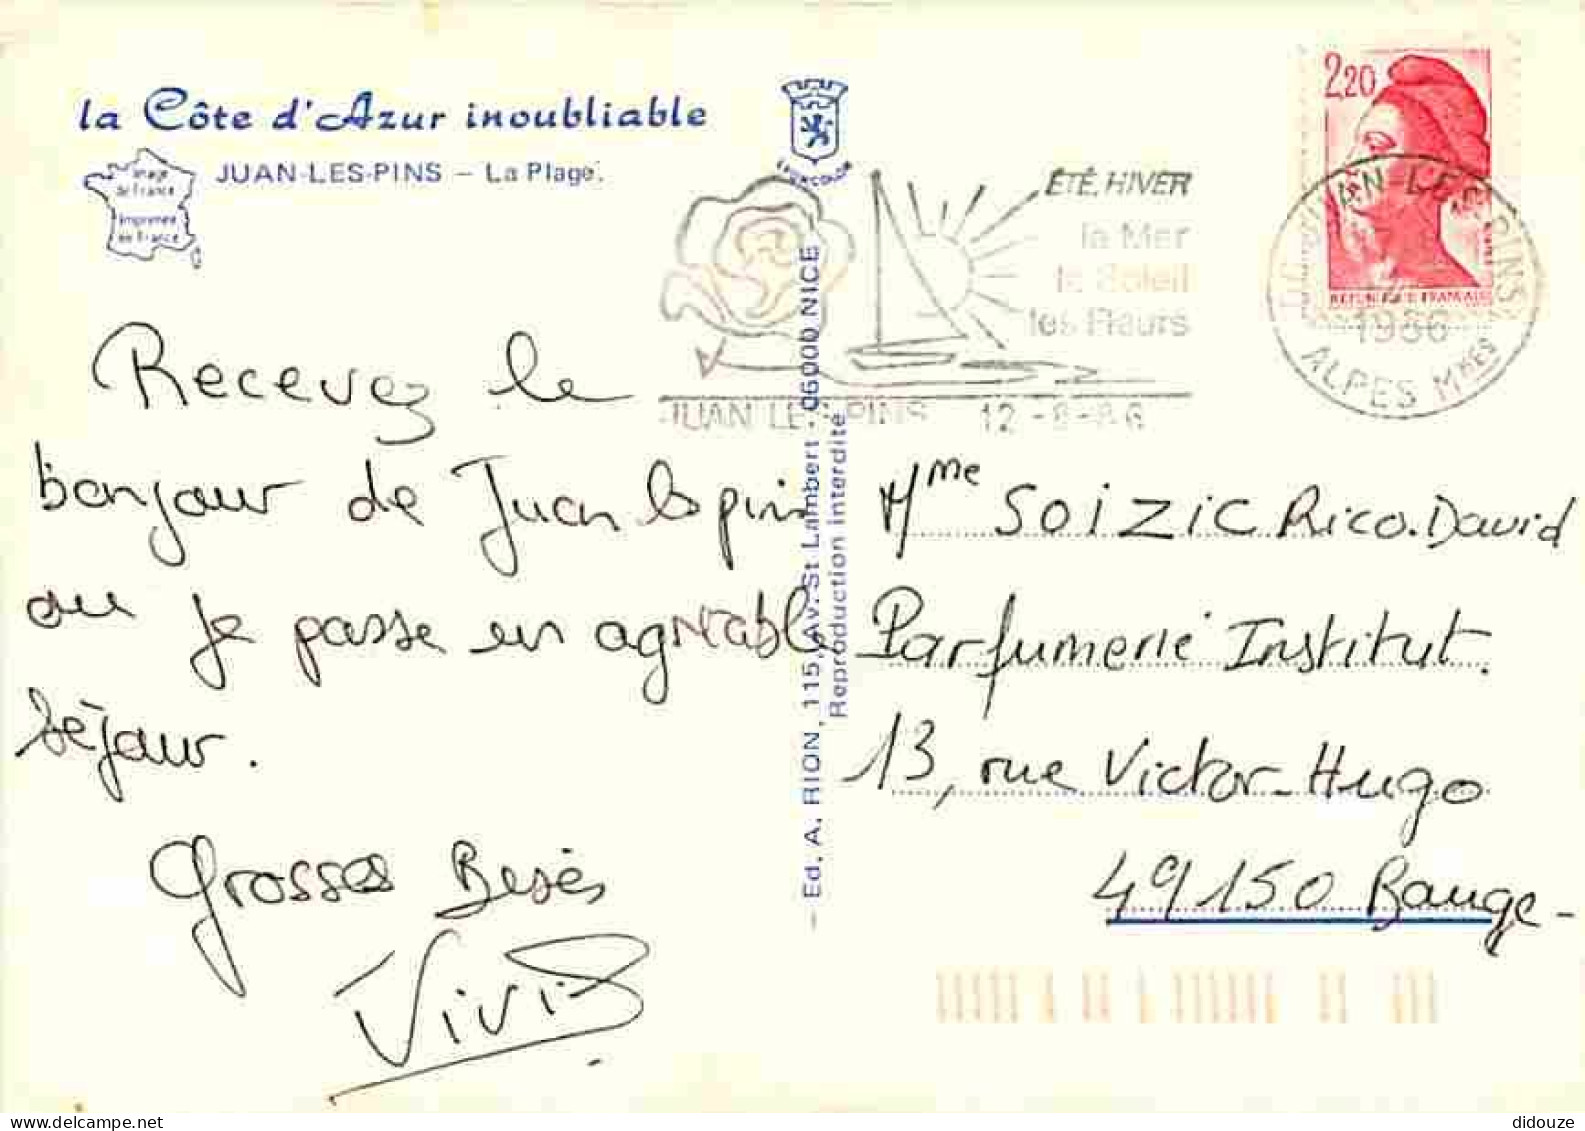 la Côte d'Azur inoubliable
JUAN-LES-PINS – La Plage.
Image
de France
Imprimée
en France
2,20
REPUBLIQUE FRANÇAISE
JUAN LES PINS
1986
ALPES Mmes
ÉTÉ, HIVER
la Mer
le Soleil
les Fleurs
JUAN LES PINS 12-8-86
Recevez le
bonjour de Juan les pins
ou je passe un agréable
séjour.
Grosses Bises
Vivi
– Ed. A. RION, 115, Av. St Lambert - 06000 NICE
Reproduction interdite
Mme Soizic Rico.David
Parfumerie Institut.
13, rue Victor-Hugo
49150 Bauge-
didouze